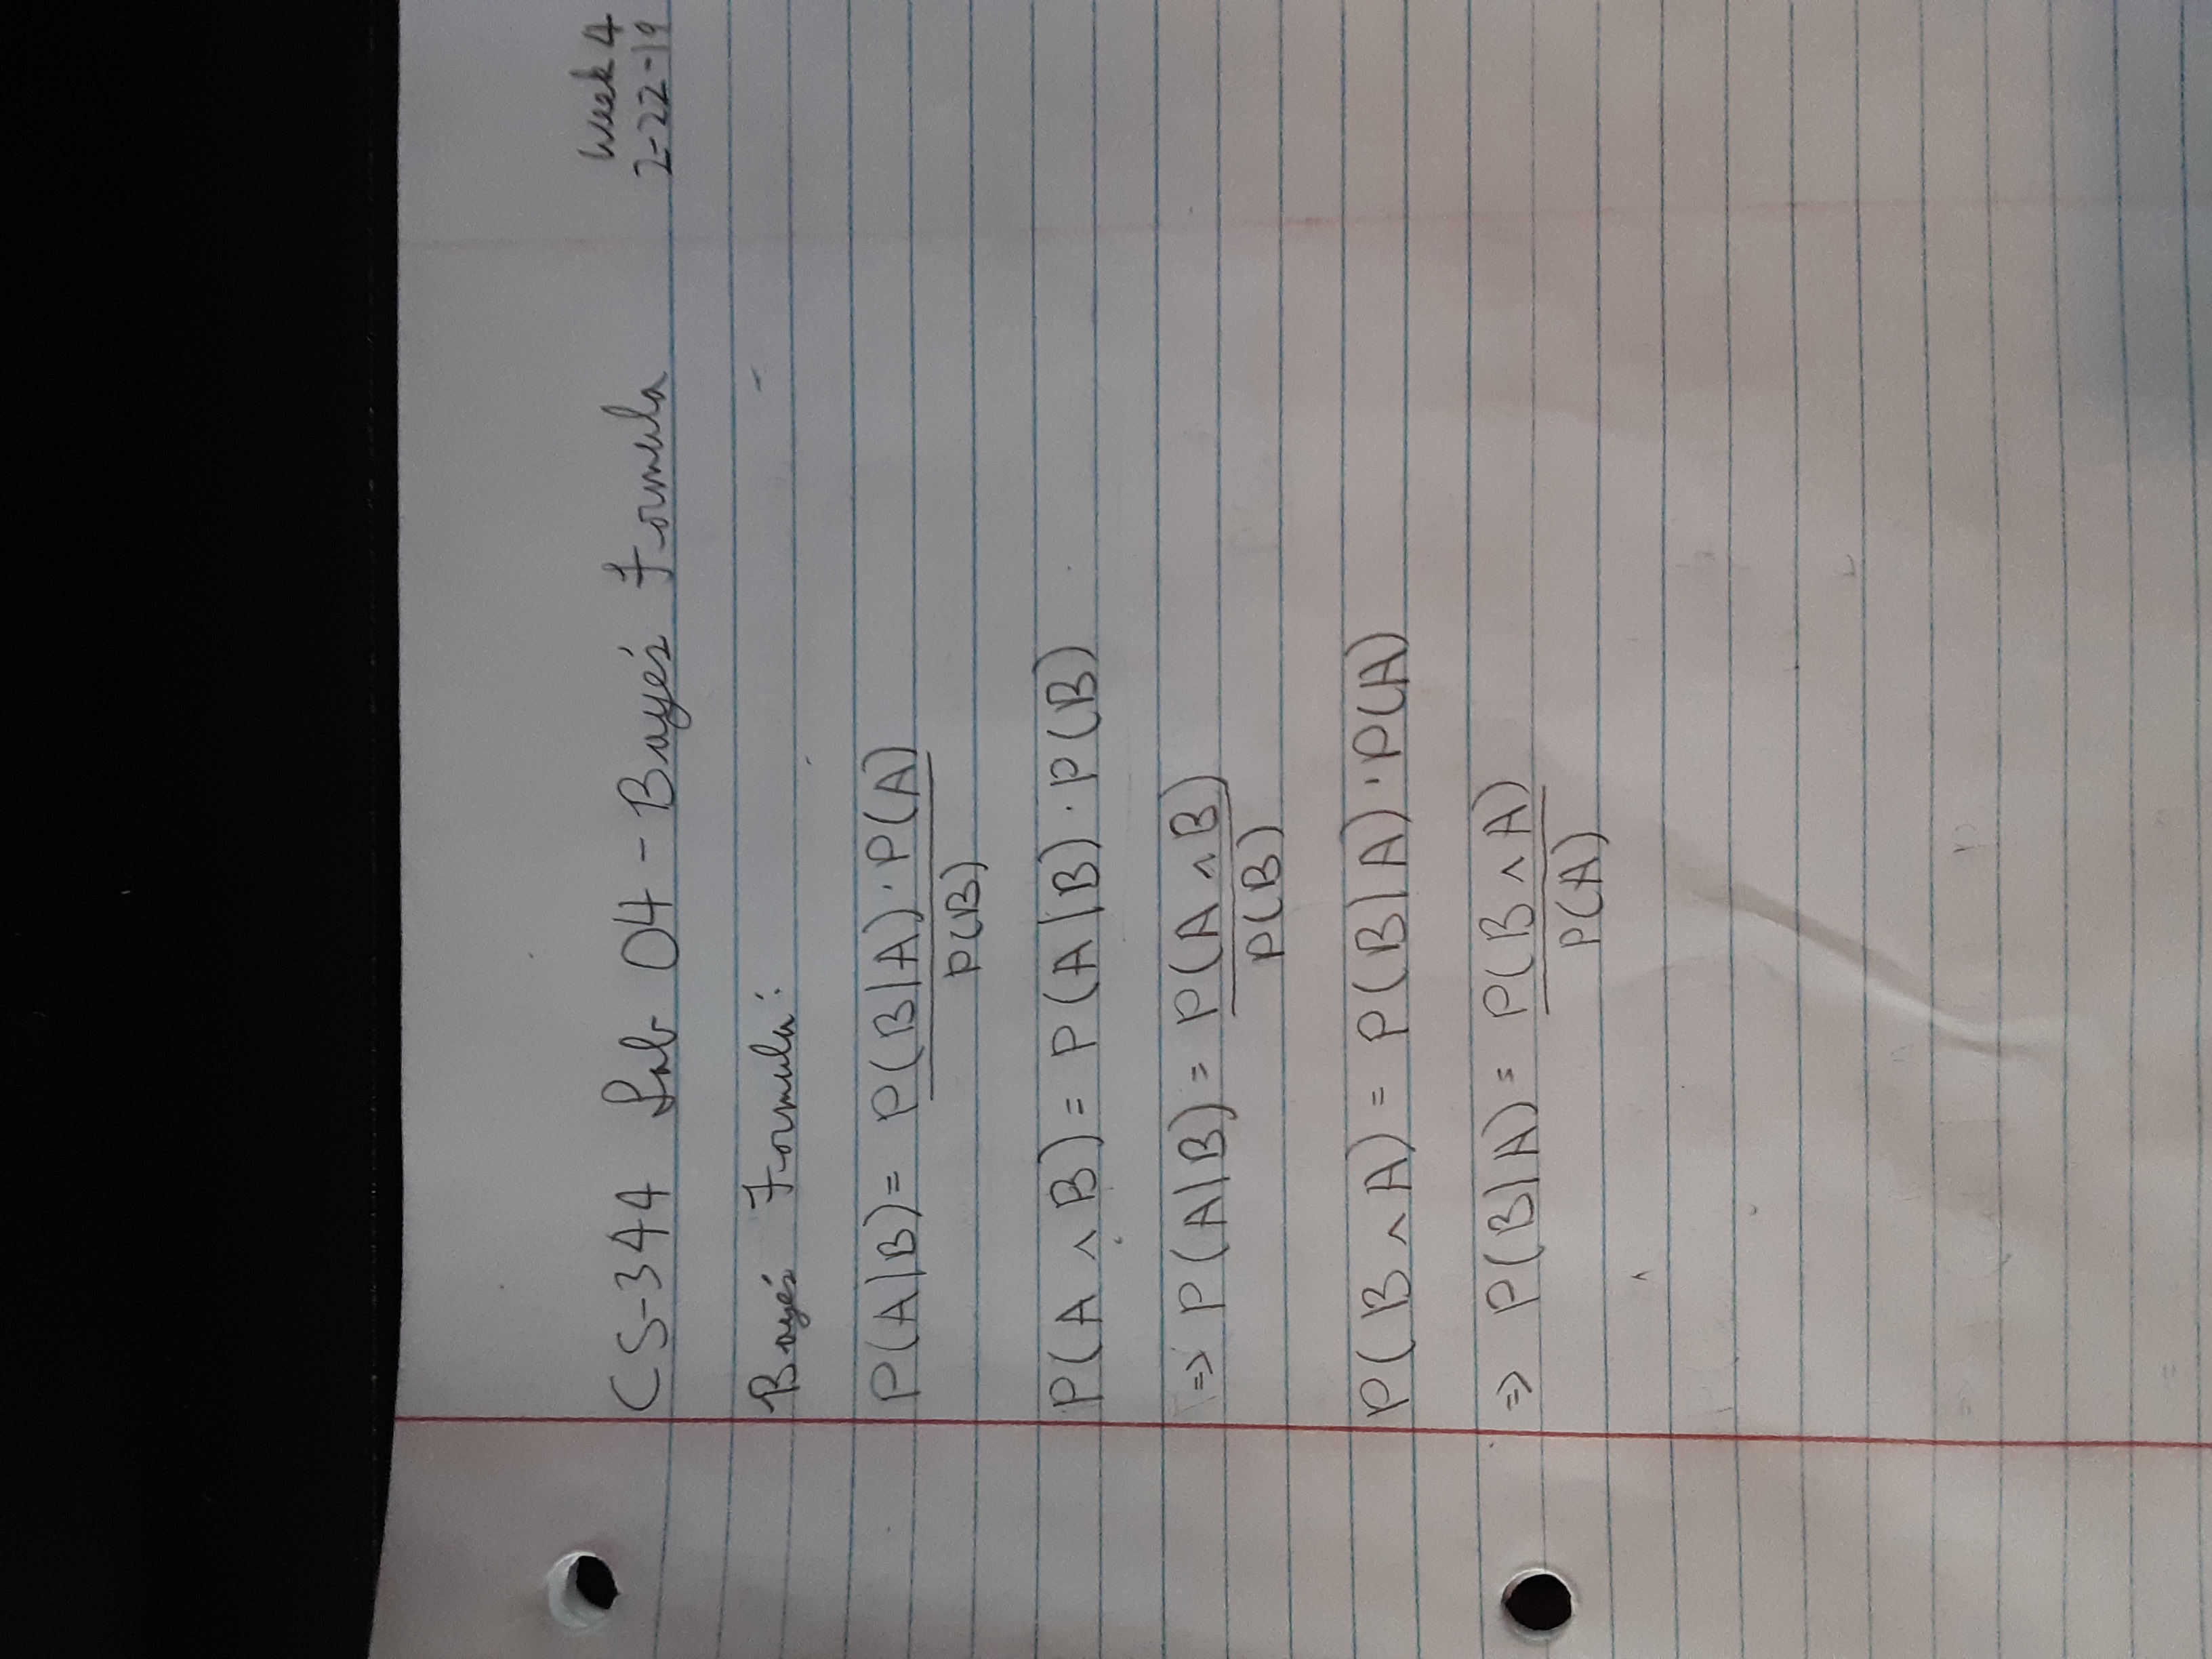 CS-344 Lab 04 - Baye's Formula
Week 4
2-22-19
Baye's Formula:
P(A|B) = P(B|A) · P(A)
P(B)
P(A ∧ B) = P(A|B) · P(B)
=> P(A|B) = P(A ∧ B)
P(B)
P(B ∧ A) = P(B|A) · P(A)
=> P(B|A) = P(B ∧ A)
P(A)